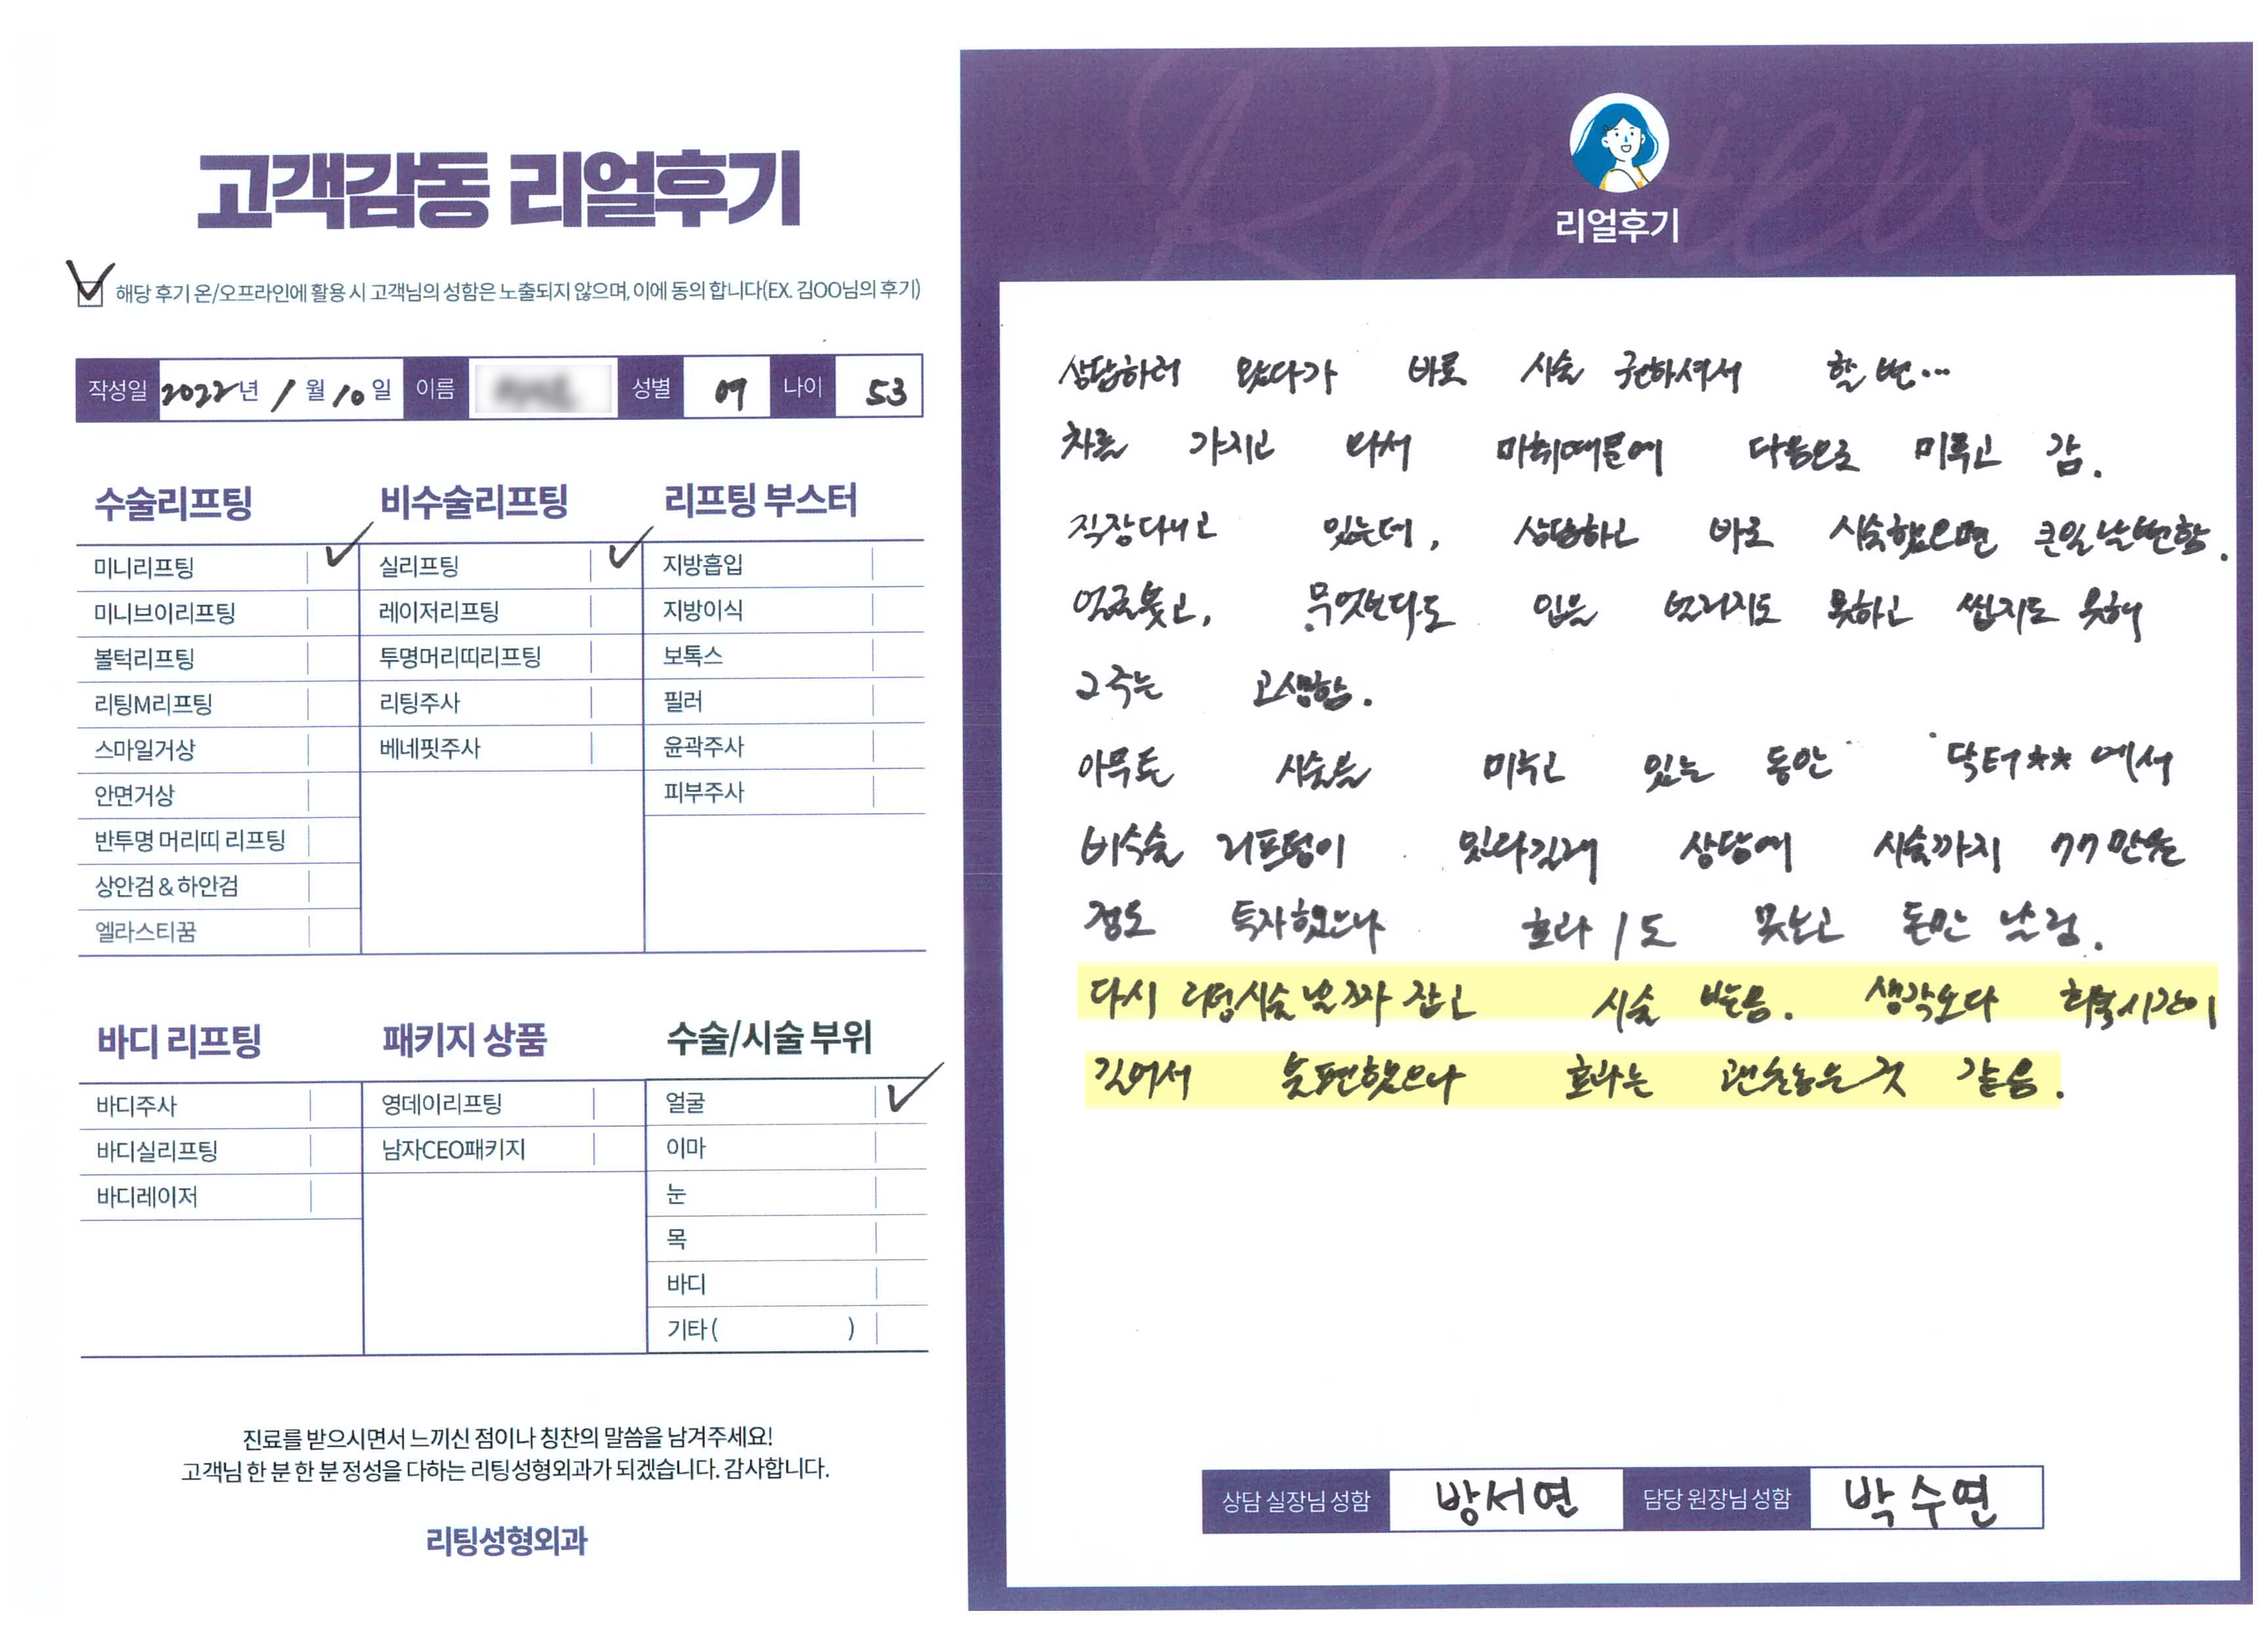 고객감동 리얼후기
해당 후기 온/오프라인에 활용 시 고객님의 성함은 노출되지 않으며, 이에 동의 합니다(EX. 김OO님의 후기)
작성일 2022년 1월 10일 이름 성별 여 나이 53
수술리프팅
미니리프팅
미니브이리프팅
볼턱리프팅
리팅M리프팅
스마일거상
안면거상
반투명 머리띠 리프팅
상안검 & 하안검
엘라스티꿈
비수술리프팅
실리프팅
레이저리프팅
투명머리띠리프팅
리팅주사
베네핏주사
리프팅 부스터
지방흡입
지방이식
보톡스
필러
윤곽주사
피부주사
바디 리프팅
바디주사
바디실리프팅
바디레이저
패키지 상품
영데이리프팅
남자CEO패키지
수술/시술 부위
얼굴
이마
눈
목
바디
기타( )
진료를 받으시면서 느끼신 점이나 칭찬의 말씀을 남겨주세요!
고객님 한 분 한 분 정성을 다하는 리팅성형외과가 되겠습니다. 감사합니다.
리팅성형외과
Review
리얼후기
상담하러 왔다가 바로 시술 권하셔서 할 뻔...
차를 가지고 와서 마취때문에 다음으로 미루고 감.
직장다니고 있는데, 상담하고 바로 시술했으면 큰일날뻔함.
얼굴붓고, 무엇보다도 입을 벌리지도 못하고 씹지도 못해
2주는 고생함.
아무튼 시술을 미루고 있는 동안 닥터** 에서
비수술 리프팅이 있다길래 상담에 시술까지 77만원
정도 투자했으나 효과 1도 못보고 돈만 날림.
다시 리팅시술 날짜 잡고 시술 받음. 생각보다 회복시간이
길어서 불편했으나 효과는 괜찮은 것 같음.
상담 실장님 성함 방서연 담당 원장님 성함 박수연